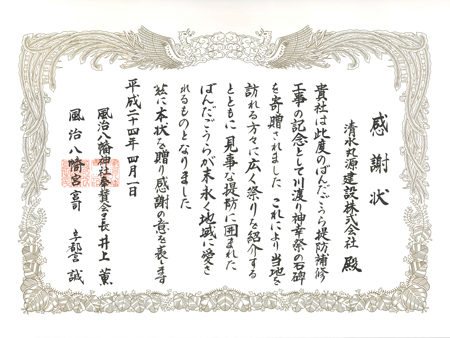 感謝状
清水丸源建設株式会社 殿
貴社は此度のばんだごうら堤防補修
工事の記念として川渡り神幸祭の石碑
を寄贈されました これにより当地を
訪れる方々に広く祭りを紹介する
とともに 見事な堤防に囲まれた
ばんだごうらが末永く地域に愛さ
れるものとなりました
茲に本状を贈り感謝の意を表します
平成二十四年四月一日
風治八幡神社奉賛会会長 井上 薫
風治八幡宮宮司 誠